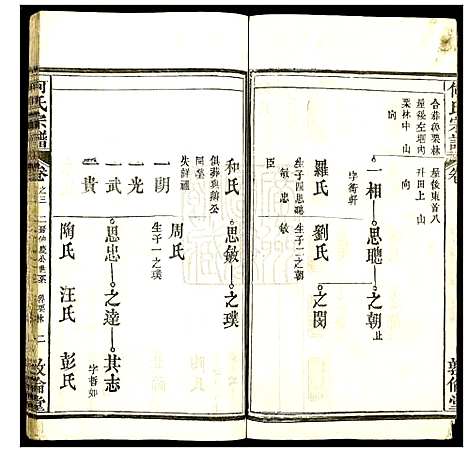 何氏宗譜
卷
合葬魯栗林
屋後左塅內
栗林中 山
向
屋後東首八
升田上 山
向
一相 思聰 之朝 止
字衡軒
羅氏 劉氏 之閔
生子四思聰 生子一之朝
敏 忠 敏
臣
和氏 思敏 之璞
俱葬與翁公
同塋
失歸疆
周氏
生子一之璞
一朋
一光
一武 思忠 之達 其志
字哲如
一貴 陶氏 汪氏 彭氏
何氏宗譜
卷之三
魯栗林
二
敦倫堂
敦倫堂